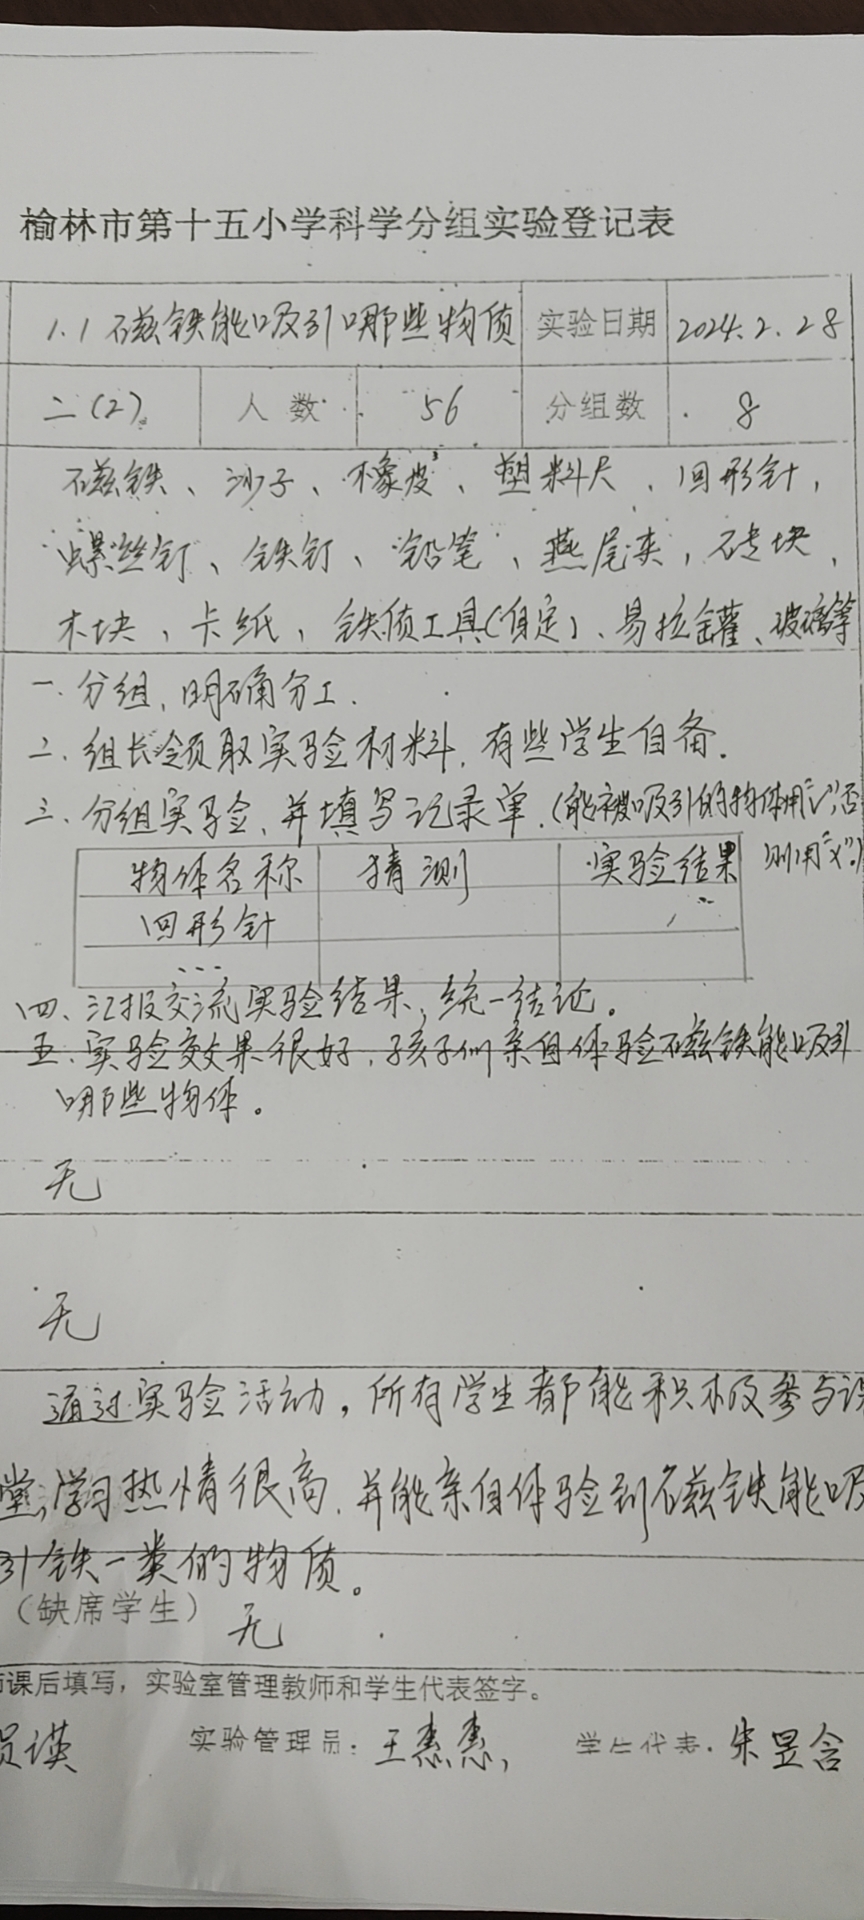 榆林市第十五小学科学分组实验登记表
1.1 磁铁能吸引哪些物质 实验日期 2024.2.28
二(2) 人数 56 分组数 8
磁铁、沙子、橡皮、塑料尺、回形针,
螺丝钉、铁钉、铅笔、燕尾夹,砖块,
木块,卡纸,铁质工具(自定)、易拉罐、玻璃等
一.分组,明确分工.
二.组长领取实验材料.有些学生自备.
三.分组实验,并填写记录单.(能被吸引的物体用"√",否
则用"×".)
物体名称 猜测 实验结果
回形针
...
四、汇报交流实验结果,统一结论。
五.实验效果很好,孩子们亲自体验磁铁能吸引
哪些物体。
无
无
通过实验活动,所有学生都能积极参与课
堂,学习热情很高.并能亲自体验到磁铁能吸
引铁一类的物质。
(缺席学生) 无
师课后填写,实验室管理教师和学生代表签字。
瑛 实验管理员: 王惠惠 学生代表: 朱昱含